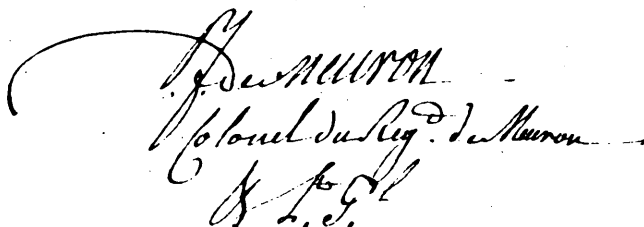 P. f. de Meuron
Colonel du Reg.d de Meuron
& L.t G.l